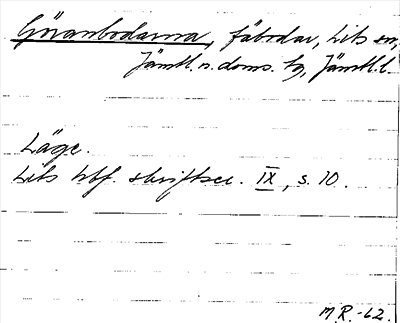 Göranbodarna, fäbodar, Lits sn,
Jämtl. n. doms. tg, Jämtl. l.
Läge.
Lits hbf. skriftser. IX, s. 10.
M.R.-62.